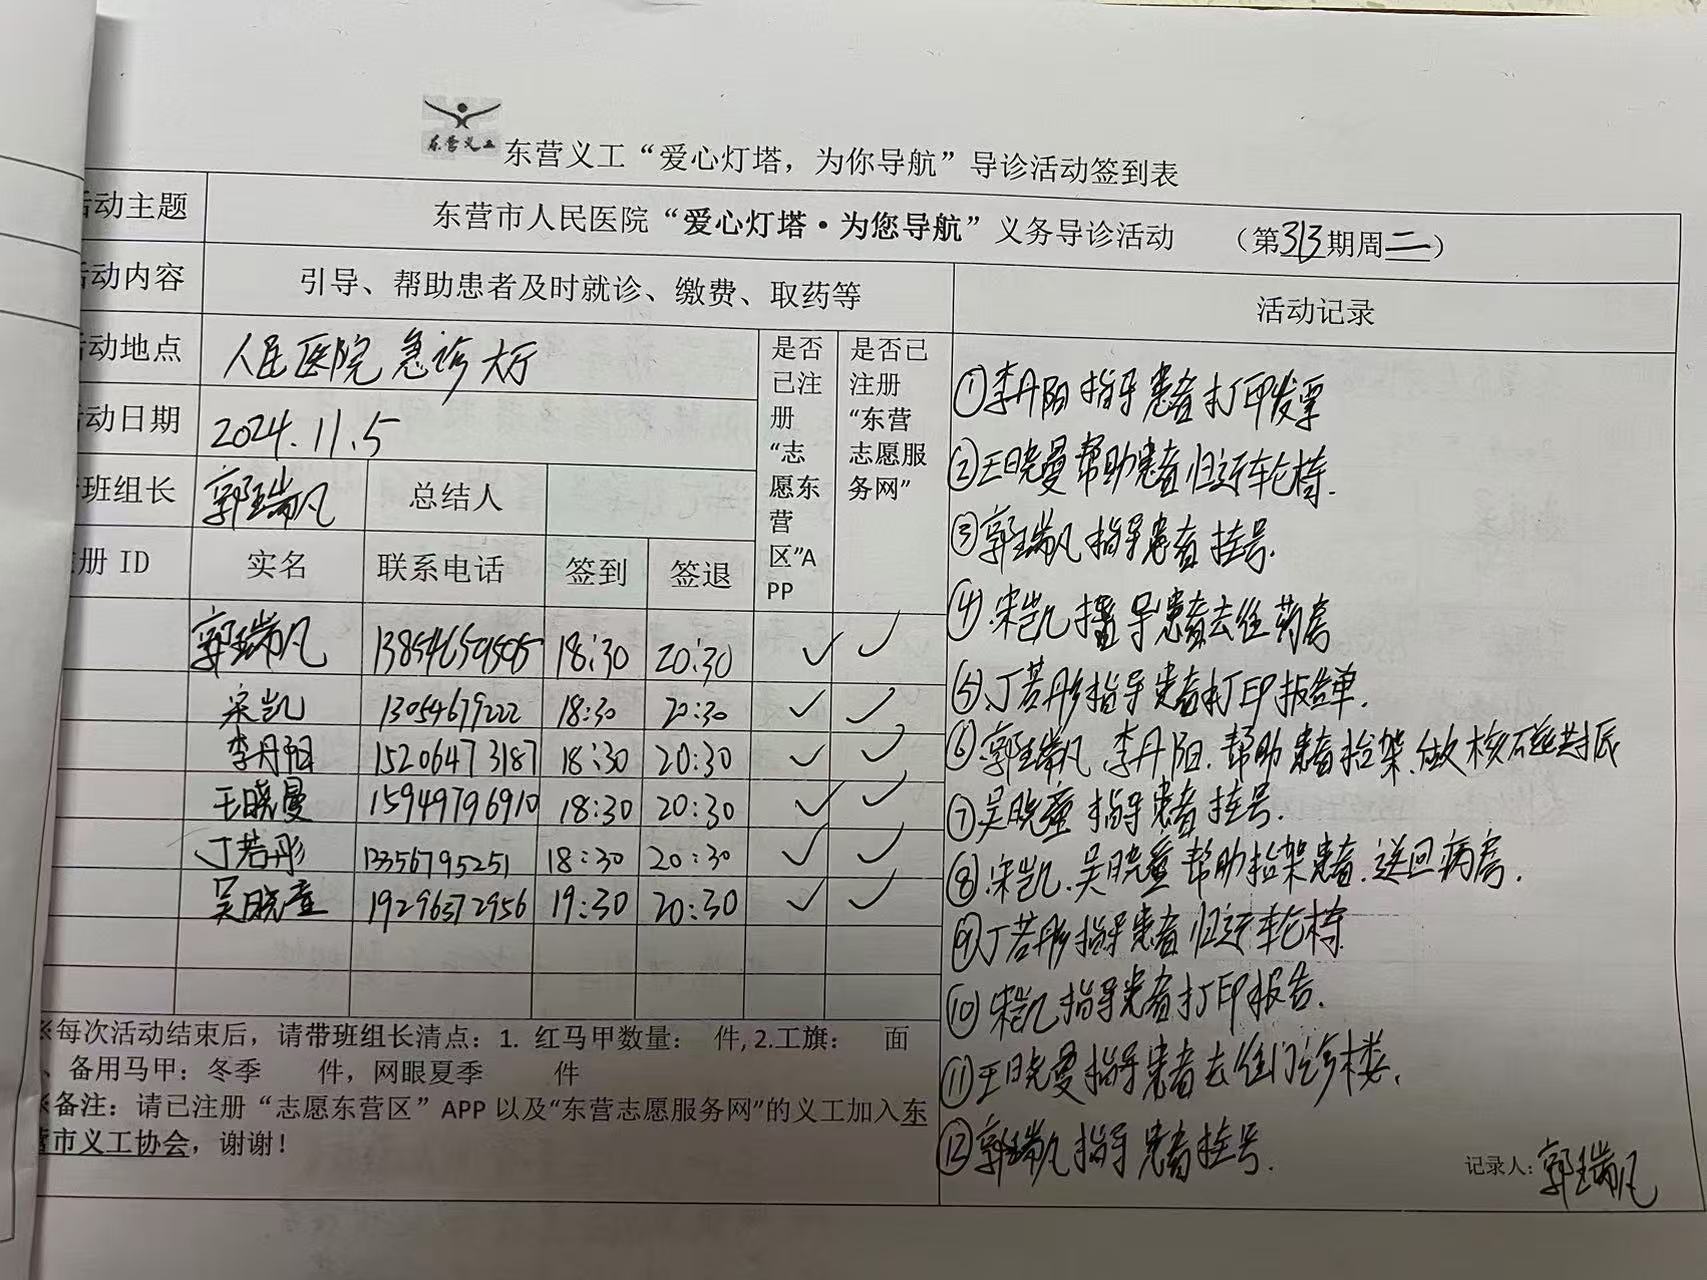 东营义工
东营义工“爱心灯塔，为你导航”导诊活动签到表
活动主题 东营市人民医院“爱心灯塔·为您导航”义务导诊活动 （第313期周二）
活动内容 引导、帮助患者及时就诊、缴费、取药等 活动记录
活动地点 人民医院急诊大厅
是否已注册“志愿东营区”APP
是否已注册“东营志愿服务网”
活动日期 2024.11.5
班组长 郭瑞凡 总结人
册 ID 实名 联系电话 签到 签退
郭瑞凡 13854650505 18:30 20:30 ✓ ✓
宋凯 13054679222 18:30 20:30 ✓ ✓
李丹阳 15206473187 18:30 20:30 ✓ ✓
王晓曼 15949796910 18:30 20:30 ✓ ✓
丁若彤 13356795251 18:30 20:30 ✓ ✓
吴晓童 19296372956 19:30 20:30 ✓ ✓
※每次活动结束后，请带班组长清点：1. 红马甲数量： 件, 2.工旗： 面
、备用马甲：冬季 件，网眼夏季 件
※备注：请已注册“志愿东营区”APP 以及“东营志愿服务网”的义工加入东
营市义工协会，谢谢！
①李丹阳指导患者打印发票
②王晓曼帮助患者归还轮椅.
③郭瑞凡指导患者挂号.
④宋凯指导患者去往药房
⑤丁若彤指导患者打印报告单.
⑥郭瑞凡.李丹阳.帮助患者抬架、做核磁共振
⑦吴晓童指导患者挂号.
⑧宋凯.吴晓童帮助抬架患者.送回病房.
⑨丁若彤指导患者归还轮椅
⑩宋凯指导患者打印报告.
⑪王晓曼指导患者去往门诊楼.
⑫郭瑞凡指导患者挂号.
记录人：郭瑞凡